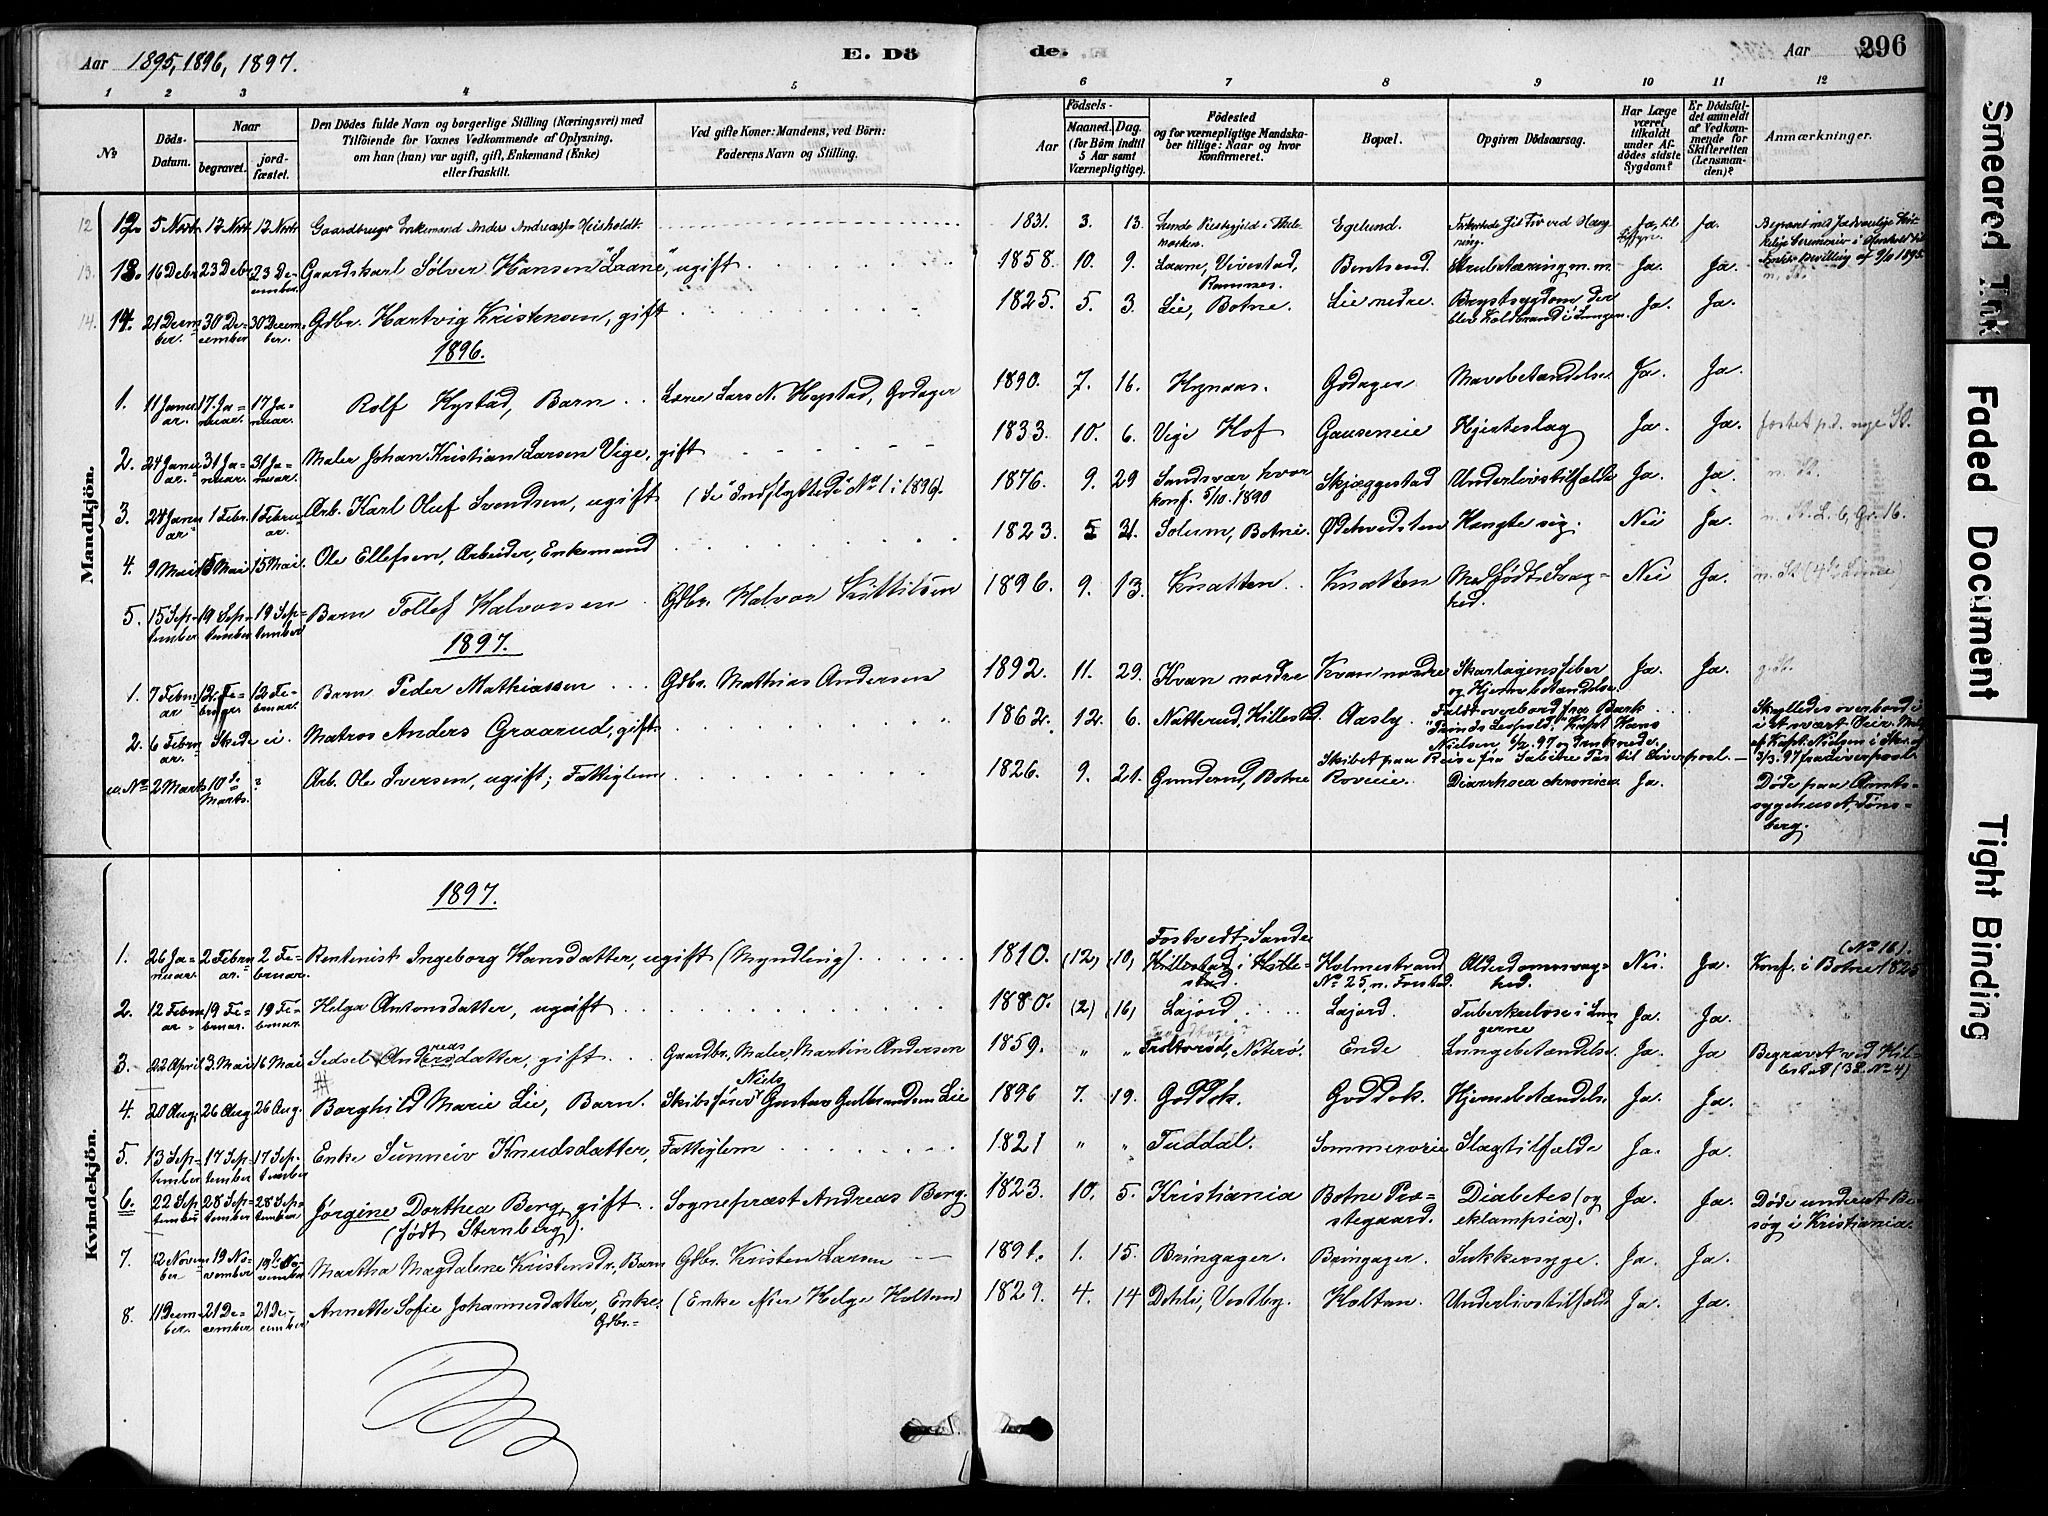 Aar 1895, 1896, 1897.
E. Dö
de.
Aar
296
1 2 3 4 5
6 7 8 9 10 11 12
No
Döds-
Datum.
Naar
begravet.
jord-
fæstet.
Den Dödes fulde Navn og borgerlige Stilling (Næringsvei) med
Tilföiende for Voxnes Vedkommende af Oplysning,
om han (hun) var ugift, gift, Enkemand (Enke)
eller fraskilt.
Ved gifte Koner: Mandens, ved Börn:
Faderens Navn og Stilling.
Födsels-
Aar
Maaned. Dag.
(for Börn indtil
5 Aar samt
Værnepligtige).
Födested
og for værnepligtige Mandska-
ber tillige: Naar og hvor
konfirmeret.
Bopæl.
Opgiven Dödsaarsag.
Har Læge
været
tilkaldt
under Af-
dödes sidste
Sygdom?
Er Dödsfal-
det anmeldt
af Vedkom-
mende for
Skifteretten
(Lensman-
den)?
Anmærkninger.
Mandkjön.
12 12. 5 Novbr 12 Novbr 12 Novbr Gaardbruger Enkemand Anders Andreas Heisholdt. 1831. 3. 13. Egelund. Ja, Ja.
13. 13. 16 Debr 23 Debr 23 De-
cember. Gaardskarl Sølver Hansen "Laane", ugift 1858. 10. 9. Laane, Vivestad,
Ramnes. Bentsrud. Strubetæring m. m. Ja. Ja.
14. 14. 21 Decem-
ber. 30 De-
cember 30 Decem-
ber. Gdbr. Hartvig Kristensen, gift 1825. 5. 3. Lie, Botne. Lie nedre. Brystsygdom der
blev Koldbrand i Lungen. Ja. Ja.
1896.
1. 11 Janu-
ar. 17 Ja-
nuar. 17 Ja-
nuar. Rolf Hystad, Barn Lærer Lars N. Hystad, Godager 1890. 7. 16. Hynaas. Godager Mavebetændelse Ja. Ja.
2. 24 Janu-
ar. 31 Ja-
nuar. 31 Ja-
nuar. Maler Johan Kristian Larsen Vige, gift 1833. 10. 6. Vige Hof Gauseneie Hjerteslag Ja. Ja.
3. 28 Janu-
ar 1 Febr. 1 Febru-
ar. Arb. Karl Oluf Svendsen, ugift (Se "Indflyttede" No 1 i 1896). 1876. 9. 29 Sandsvær, hvor
konf. 5/10. 1890 Skjæggestad Underlivstilfælde Ja. Ja.
4. 9 Mai 15 Mai 15 Mai. Ole Ellefsen, Arbeider, Enkemand 1823. 5 31. Solum, Botne. Ødehvedsten Hængte sig. Nei Ja.
5. 15 Sep-
tember 19 Sep-
tember 19 Sep-
tember Barn Tollef Halvorsen Gdbr. Halvor Kittilsen 1896. 9. 13. Knatten. Knatten Medfødt Svag-
hed. Nei Ja.
1897.
1. 7 Febru-
ar 12 Fe- 12 Fe-
bruar. Barn Peder Mathiassen Gdbr. Mathias Andersen 1892. 11. 29. Kvan nordre Kvan nordre Skarlagensfeber
og Hjernebetændelse. Ja. Ja.
2. 6 Febru-
ar. Skede ei. Matros Anders Graarud, gift. 1862. 12. 6. Natterud, Hillest. Aasby. Faldt overbord fra Bark
"Prinds Leopold", Kapt. Hans
Nielsen 6/2. 97 og druknede.
Skibet paa Reise fra Sabine Pas til Liverpool.
Skylledes overbord i
et svært Veir.
3/3. 97 fra Liverpool.
u. No 2 Marts 10de
Marts. ? Arb. Ole Iversen, ugift; Fattiglem 1826. 9. 21. Gunderud, Botne Roveie. Diarrhoea chronica. Ja. Døde paa Amts-
sygehuset, Tøns-
berg.
Kvindekjön.
1897.
1. 26 Ja-
nuar. 2 Febru-
ar. 2 Fe-
bruar. Rentenist Ingeborg Hansdatter, ugift (Myndling). 1810. (12) (10) Fostvedt, Sande
Hillestad i Hille-
stad. Holmestrand
No 25, n. Forstad. Alderdomssvag-
hed. Nei. Ja. (No 16).
Konf. i Botne 1825
2. 12 Febru-
ar 19 Fe-
bruar. 19 Fe-
bruar. Helga Antonsdatter, ugift 1880. (2) 16) Løjord Løjord. Tuberkulose i Lun-
gerne Ja. Ja.
3. 22 April 3. Mai 16 Mai Sedsel Andersdatter, gift. Gaardbr. Maler, Martin Andersen 1859. " " Trolsrød, Nøterø. Ende Lungebetændelse Ja. Ja Begravet ved Hil-
lestad (3 L. No 4)
4. 20 Aug. 26 Aug 26 Aug. Borghild Marie Lie, Barn. Skibsfører Niels Gustav Gulbrandsen Lie 1896 7. 19. Goddok. Goddok. Hjernebetændelse Ja. Ja.
5. 13 Sep-
tember 17 Sep-
tember 17 Sep-
tember Enke Sunneiv Knudsdatter, Fattiglem 1821 " " Tuddal. Sommeroeie Slagtilfælde Ja. Ja.
6. 22 Sep-
tember 28 Sep-
tember 28 Sep-
tember Jørgine Dorthea Berg, gift
(født Sternberg). Sogneprest Andreas Berg. 1823. 10. 5. Kristiania Botne Præ-
stegaard. Diabetes (og
eklampsia). Ja. Ja. Døde under et Be-
søg i Kristiania.
7. 12 Novem-
ber 19 No-
vember 19de No-
vember Martha Magdalene Kristensdr, Barn Gdbr. Kristen Larsen 1891. 1. 15. Bringager. Bringager. Sukkersyge. Ja. Ja.
8. 11 Decem-
ber. 21 De-
cember 21 De-
cember Annette Sofie Johannesdatter, Enke.
Gdbr. (Enke efter Helge Holtan) 1829. 4. 14 Dehli, Vestby. Holtan. Underlivstilfælde Ja. Ja.
Smeared Ink
Faded Document
Tight Binding